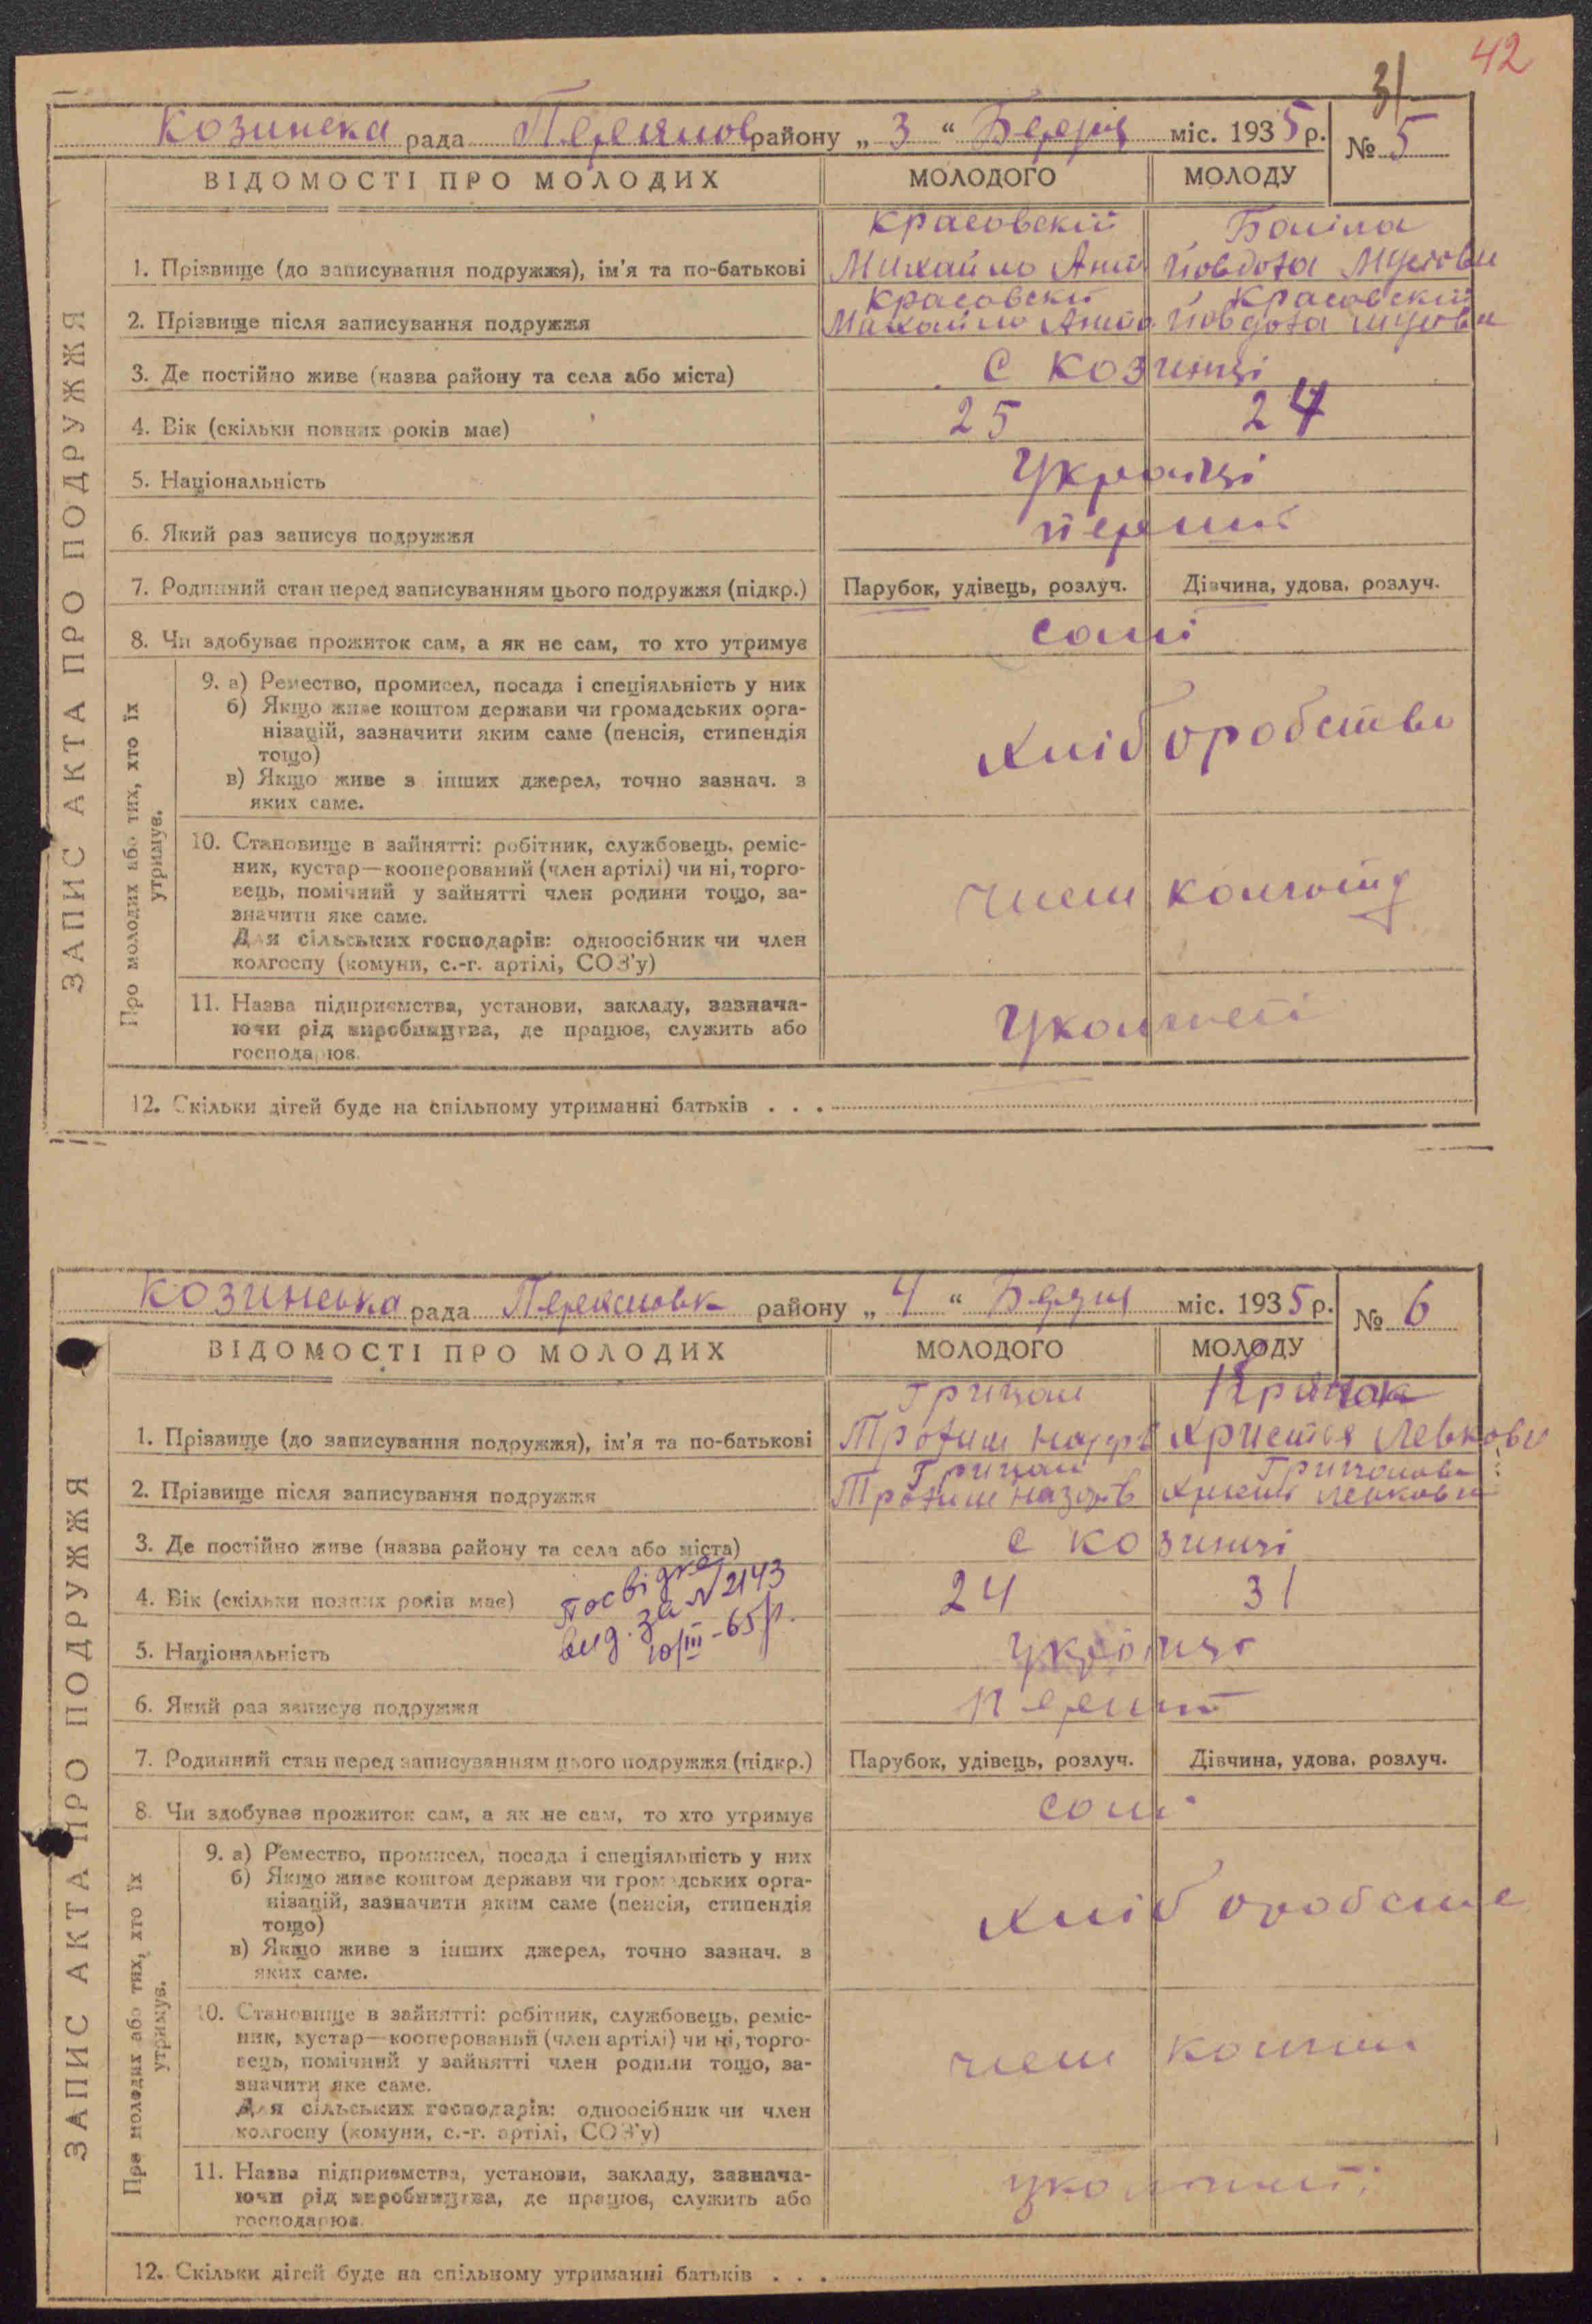 42
31
Козинска рада Переяслов району „ 3 “ Березня міс. 1935 р. № 5
ВІДОМОСТІ ПРО МОЛОДИХ МОЛОДОГО МОЛОДУ
ЗАПИС АКТА ПРО ПОДРУЖЖЯ
Красовскій
1. Прізвище (до записування подружжя), ім'я та по-батькові Михайло Йовдоха
Красовскій Красовскій
2. Прізвище після записування подружжя Михайло Йовдоха
3. Де постійно живе (назва району та села або міста) С Козинці
4. Вік (скільки повних років має) 25 24
5. Національність Українці
6. Який раз записує подружжя перший
7. Родинний стан перед записуванням цього подружжя (підкр.) Парубок, удівець, розлуч. Дівчина, удова, розлуч.
8. Чи здобуває прожиток сам, а як не сам, то хто утримує самі
Про молодих або тих, хто їх утримує.
9. а) Ремество, промисел, посада і спеціяльність у них
б) Якщо живе коштом держави чи громадських орга-
нізацій, зазначити яким саме (пенсія, стипендія
тощо)
в) Якщо живе з інших джерел, точно зазнач. з
яких саме.
хліборобство
10. Становище в зайнятті: робітник, службовець, реміс-
ник, кустар—кооперований (член артілі) чи ні, торго-
вець, помічний у зайнятті член родини тощо, за-
значити яке саме.
Для сільських господарів: одноосібник чи член
колгоспу (комуни, с.-г. артілі, СОЗ'у)
член
11. Назва підприємства, установи, закладу, зазнача-
ючи рід виробництва, де працює, служить або
господарює.
12. Скільки дітей буде на спільному утриманні батьків . . .
Козинська рада району „ 4 “ Березня міс. 1935 р. № 6
ВІДОМОСТІ ПРО МОЛОДИХ МОЛОДОГО МОЛОДУ
ЗАПИС АКТА ПРО ПОДРУЖЖЯ
Грицай
1. Прізвище (до записування подружжя), ім'я та по-батькові Трохим Христя Левкови
Грицай
2. Прізвище після записування подружжя Трохим Левкови
3. Де постійно живе (назва району та села або міста) с Козинці
4. Вік (скільки повних років має) 24 31
Посвідка
вид. за № 2143
10/III-65р.
5. Національність українці
6. Який раз записує подружжя перший
7. Родинний стан перед записуванням цього подружжя (підкр.) Парубок, удівець, розлуч. Дівчина, удова, розлуч.
8. Чи здобуває прожиток сам, а як не сам, то хто утримує самі
Про молодих або тих, хто їх утримує.
9. а) Ремество, промисел, посада і спеціяльність у них
б) Якщо живе коштом держави чи громадських орга-
нізацій, зазначити яким саме (пенсія, стипендія
тощо)
в) Якщо живе з інших джерел, точно зазнач. з
яких саме.
10. Становище в зайнятті: робітник, службовець, реміс-
ник, кустар—кооперований (член артілі) чи ні, торго-
вець, помічний у зайнятті член родини тощо, за-
значити яке саме.
Для сільських господарів: одноосібник чи член
колгоспу (комуни, с.-г. артілі, СОЗ'у)
член
11. Назва підприємства, установи, закладу, зазнача-
ючи рід виробництва, де працює, служить або
господарює.
12. Скільки дітей буде на спільному утриманні батьків . . .